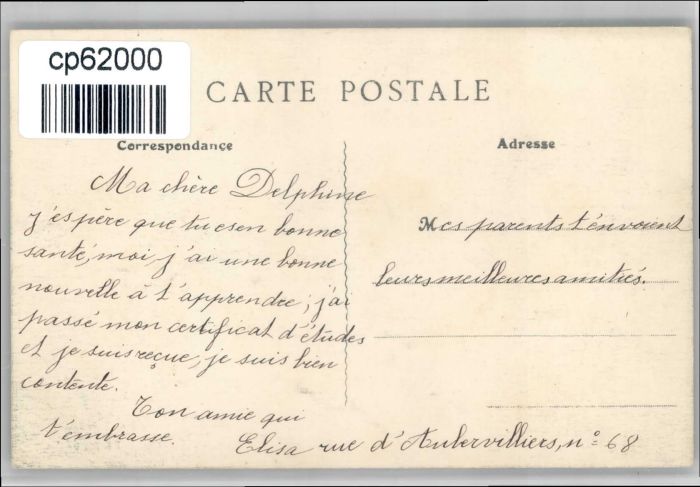 cp62000
CARTE POSTALE
Correspondance
Adresse
Ma chère Delphine
j'espère que tu es en bonne
santé, moi j'ai une bonne
nouvelle à t'apprendre; j'ai
passé mon certificat d'études
et je suis reçue, je suis bien
contente.
Ton amie qui
t'embrasse.
Elisa rue d'Aubervilliers, n° 68
Mes parents t'envoient
leurs meilleures amitiés.